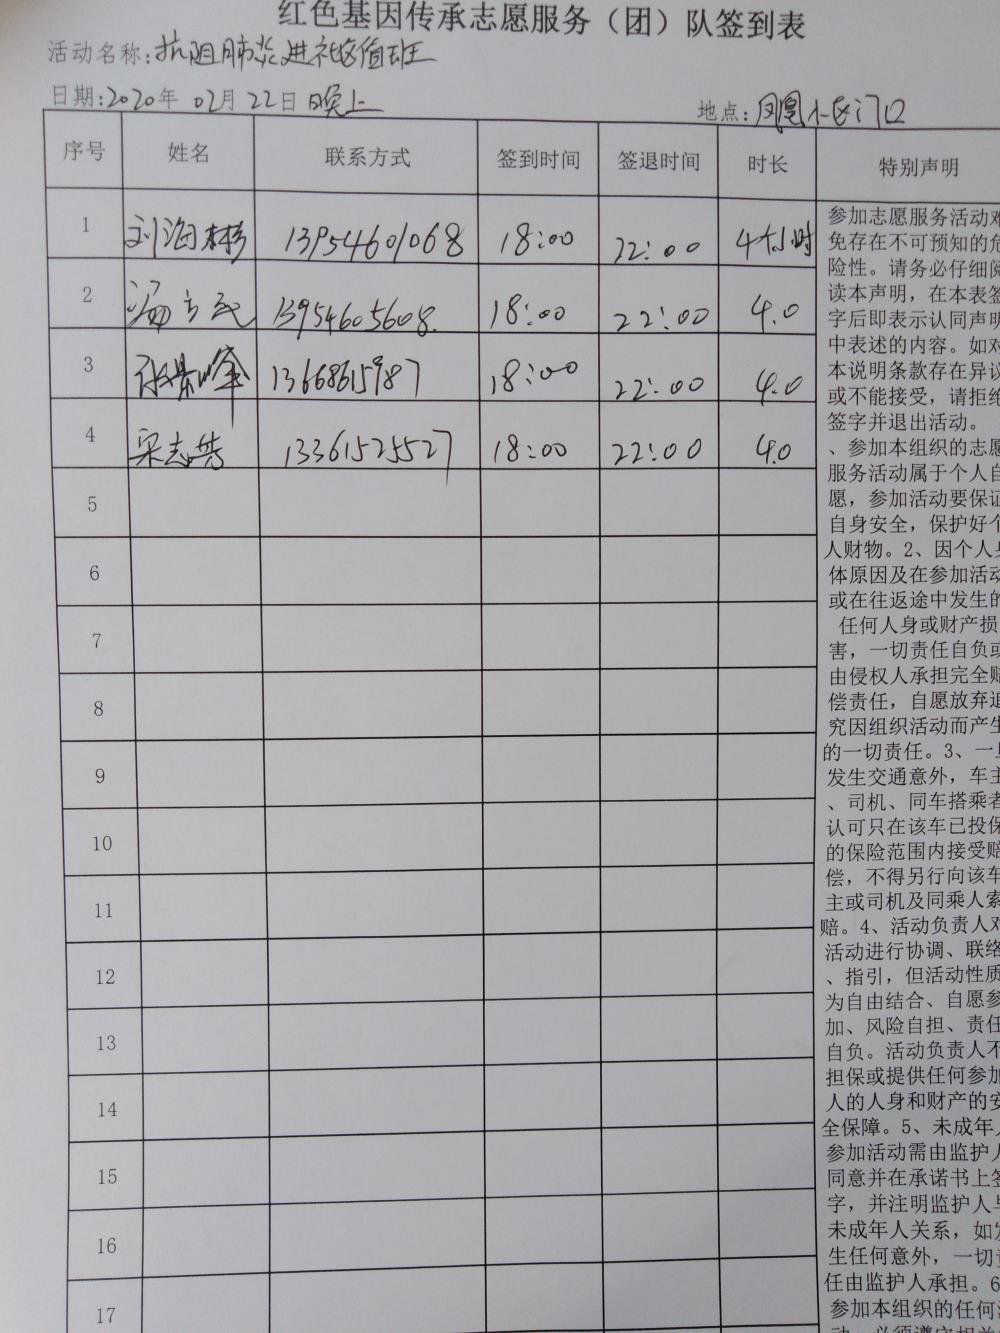 红色基因传承志愿服务（团）队签到表
活动名称:抗阻肺炎进社区值班
日期:2020年 02月 22日 晚上
地点:凤凰小区门口
序号 姓名 联系方式 签到时间 签退时间 时长 特别声明
1 刘海彬 13954601068 18:00 22:00 4小时
2 汤方民 13954605608. 18:00 22:00 4.0
3 张景峰 13668615987 18:00 22:00 4.0
4 梁志芳 13361525527 18:00 22:00 4.0
5
6
7
8
9
10
11
12
13
14
15
16
17
参加志愿服务活动难
免存在不可预知的危
险性。请务必仔细阅
读本声明，在本表签
字后即表示认同声明
中表述的内容。如对
本说明条款存在异议
或不能接受，请拒绝
签字并退出活动。
、参加本组织的志愿
服务活动属于个人自
愿，参加活动要保证
自身安全，保护好个
人财物。2、因个人身
体原因及在参加活动
或在往返途中发生的
任何人身或财产损
害，一切责任自负或
由侵权人承担完全赔
偿责任，自愿放弃追
究因组织活动而产生
的一切责任。3、一旦
发生交通意外，车主
、司机、同车搭乘者
认可只在该车已投保
的保险范围内接受赔
偿，不得另行向该车
主或司机及同乘人索
赔。4、活动负责人对
活动进行协调、联络
、指引，但活动性质
为自由结合、自愿参
加、风险自担、责任
自负。活动负责人不
担保或提供任何参加
人的人身和财产的安
全保障。5、未成年人
参加活动需由监护人
同意并在承诺书上签
字，并注明监护人与
未成年人关系，如发
生任何意外，一切责
任由监护人承担。6
参加本组织的任何活
动，必须遵守相关